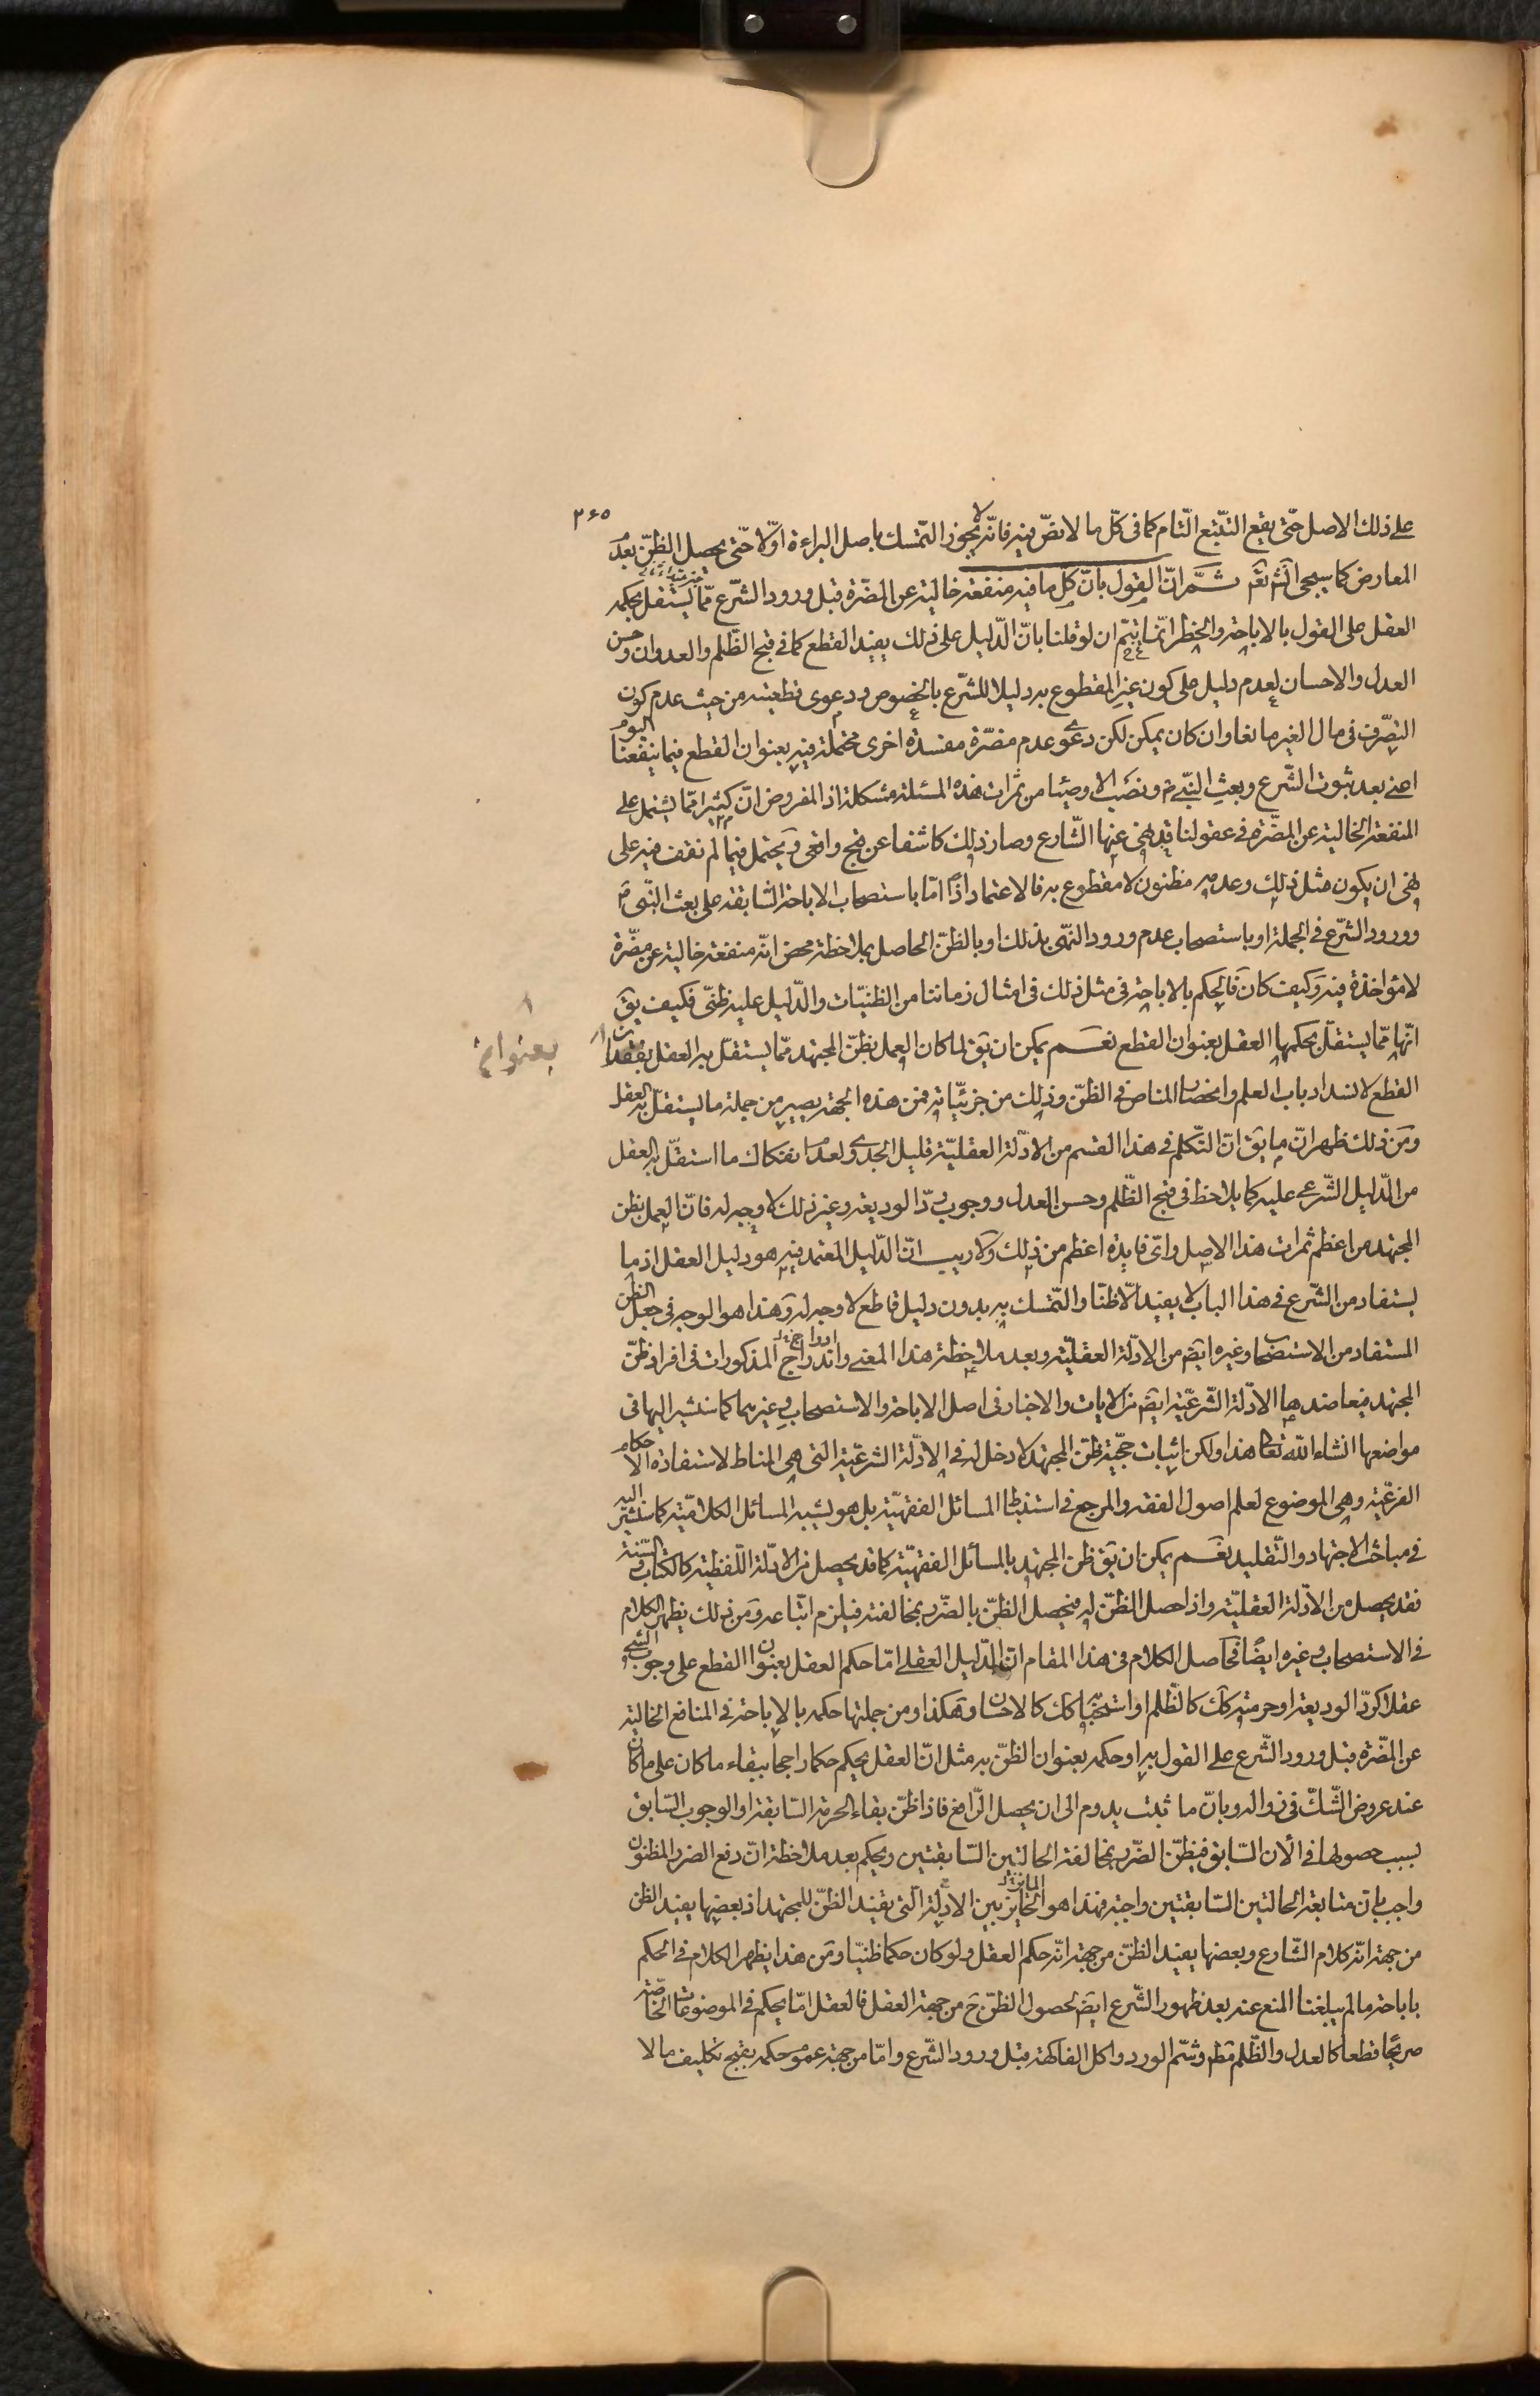 ۲۶۵
على ذلك الاصل حتّى يقع التتبّع التّام كما فى كلّ ما لا نصّ فيه فانّه لا يجوز التمسّك باصل البراءة اوّلا حتّى يحصل الظنّ بعدم
المعارض كما سيجئ انش تعم ثمّ انّ القول بانّ كل ما فيه منفعة خالية عن المضرّة قبل ورود الشّرع ممّا يستقل بحكمه
العقل على القول بالاباحة والحظر انّما يتمّ ان لو قلنا بانّ الدّليل على ذلك يفيد القطع كما فى قبح الظّلم والعدوان وحسن
العدل والاحسان لعدم دليل على كون غير المقطوع به دليلا للشّرع بالخصوص ودعوى قطعيته من حيث عدم كون
التصّرف فى مال الغير مانعا وان كان يمكن لكن دعوى عدم مضرّة مفسدة اخرى محتملة فيه بعنوان القطع فيما ينفعنا اليوم
اعنى بعد ثبوت الشّرع وبعث النّبى ص ونصب الاوصياء من ثمرات هذه المسئلة مشكلة اذ المفروض انّ كثيرا ممّا يشتمل على
المنفعة الخالية عن المضّرة فى عقولنا قد نهى عنها الشّارع وصار ذلك كاشفا عن قبح واقعى ويحتمل فيما لم نقف فيه على
نهى ان يكون مثل ذلك وعدمه مظنون لا مقطوع به فالاعتماد اذًا امّا باستصحاب الاباحة السّابقة على بعث النّبى ص
وورود الشّرع فى الجملة او باستصحاب عدم ورود النّهى بذلك او بالظنّ الحاصل بملاحظة محض انّه منفعة خالية عن مضّرة
لا مؤاخذة فيه وكيف كان فالحكم بالاباحة فى مثل ذلك فى امثال زماننا من الظنيّات والدّليل عليه ظنّى فكيف يق
انّها ممّا يستقلّ بحكمها العقل بعنوان القطع نعم يمكن ان يق لما كان العمل بظنّ المجتهد ممّا يستقلّ به العقل بفقدان
بعنوان
القطع لانسداد باب العلم وانحصار المناص فى الظنّ وذلك من جزئيّاته فمن هذه الجهة يصير من جملة ما يستقلّ به العقل
ومن ذلك ظهر انّ ما يق انّ التّكلم فى هذا القسم من الادّلة العقليّة قليل الجدى ولعدم انفكاك ما استقلّ به العقل
من الدّليل الشّرعى عليه كما يلاحظ فى قبح الظّلم وحسن العدل ووجوب ردّ الوديعة وغير ذلك لا وجه له فانّ العمل بظن
المجتهد من اعظم ثمرات هذا الاصل واىّ فايدة اعظم من ذلك ولا ريب انّ الدّليل المعتمد فيه هو دليل العقل اذ ما
يستفاد من الشّرع فى هذا الباب لا يفيد الّا ظنّا والتّمسك به بدون دليل قاطع لا وجه له وهذا هو الوجه فى جعل الظن
المستفاد من الاستصحاب وغيره ايضم من الادّلة العقليّة وبعد ملاحظة هذا المعنى واندراج المذكورات فى افراد ظنّ
المجتهد فيعاضدها الادّلة الشّرعيّة ايضم من الايات والاخبار فى اصل الاباحة والاستصحاب وغيرهما كما سنشير اليها فى
مواضعها انشاء الله تعالى هذا ولكن اثبات حجّية ظنّ المجتهد لا دخل له فى الادّلة الشرعيّة التى هى المناط لاستفادة الاحكام
الفرعيّة وهى الموضوع لعلم اصول الفقه والمرجع فى استنباط المسائل الفقهيّة بل هو يشبه المسائل الكلاميّة كما سنشير اليه
فى مباحث الاجتهاد والتّقليد نعم يمكن ان يق ظن المجتهد بالمسائل الفقهيّة كما قد يحصل من الادّلة اللّفظية كالكتاب والسّنة
فقد يحصل من الادّلة العقليّة واذا حصل الظنّ له فيحصل الظنّ بالضّرر بمخالفته فيلزم اتّباعه ومن ذلك يظهر الكلام
فى الاستصحاب وغيره ايضًا فحاصل الكلام فى هذا المقام انّ الدّليل العقلى امّا حكم العقل بعنوان القطع على وجوب الشئ
عقلا كردّ الوديعة او حرمته كك كالظّلم او استحبابه كك كالاحسان وهكذا ومن جملتها حكمه بالاباحة فى المنافع الخالية
عن المضّرة قبل ورود الشّرع على القول به او حكمه بعنوان الظنّ به مثل انّ العقل يحكم حكما راجحا ببقاء ما كان على ما كان
عند عروض الشّكّ فى زواله وبانّ ما ثبت يدوم الى ان يحصل الرّافع فاذا ظنّ بقاء الحرمة السّابقة او الوجوب السّابق
بسبب حصولها فى الان السّابق فيظنّ الضّرر بمخالفة الحالتين السّابقتين ويحكم بعد ملاحظة انّ دفع الضرر المظنون
واجب بان متابعة الحالتين السّابقتين واجبة فهذا هو المايز بين الادّلة الّتى يفيد الظنّ للمجتهد اذ بعضها يفيد الظن
من جهة انّه كلام الشّارع وبعضها يفيد الظنّ من جهة انّه حكم العقل ولو كان حكما ظنيّا ومن هذا يظهر الكلام فى الحكم
باباحة ما لم يبلغنا المنع عنه بعد ظهور الشّرع ايضم لحصول الظنّ ح من جهة العقل فالعقل امّا يحكم فى الموضوعات الخاصّة
صريحًا قطعا كالعدل والظّلم وشمّ الورد واكل الفاكهة قبل ورود الشّرع وامّا من جهة عموم حكمه بقبح تكليف ما لا